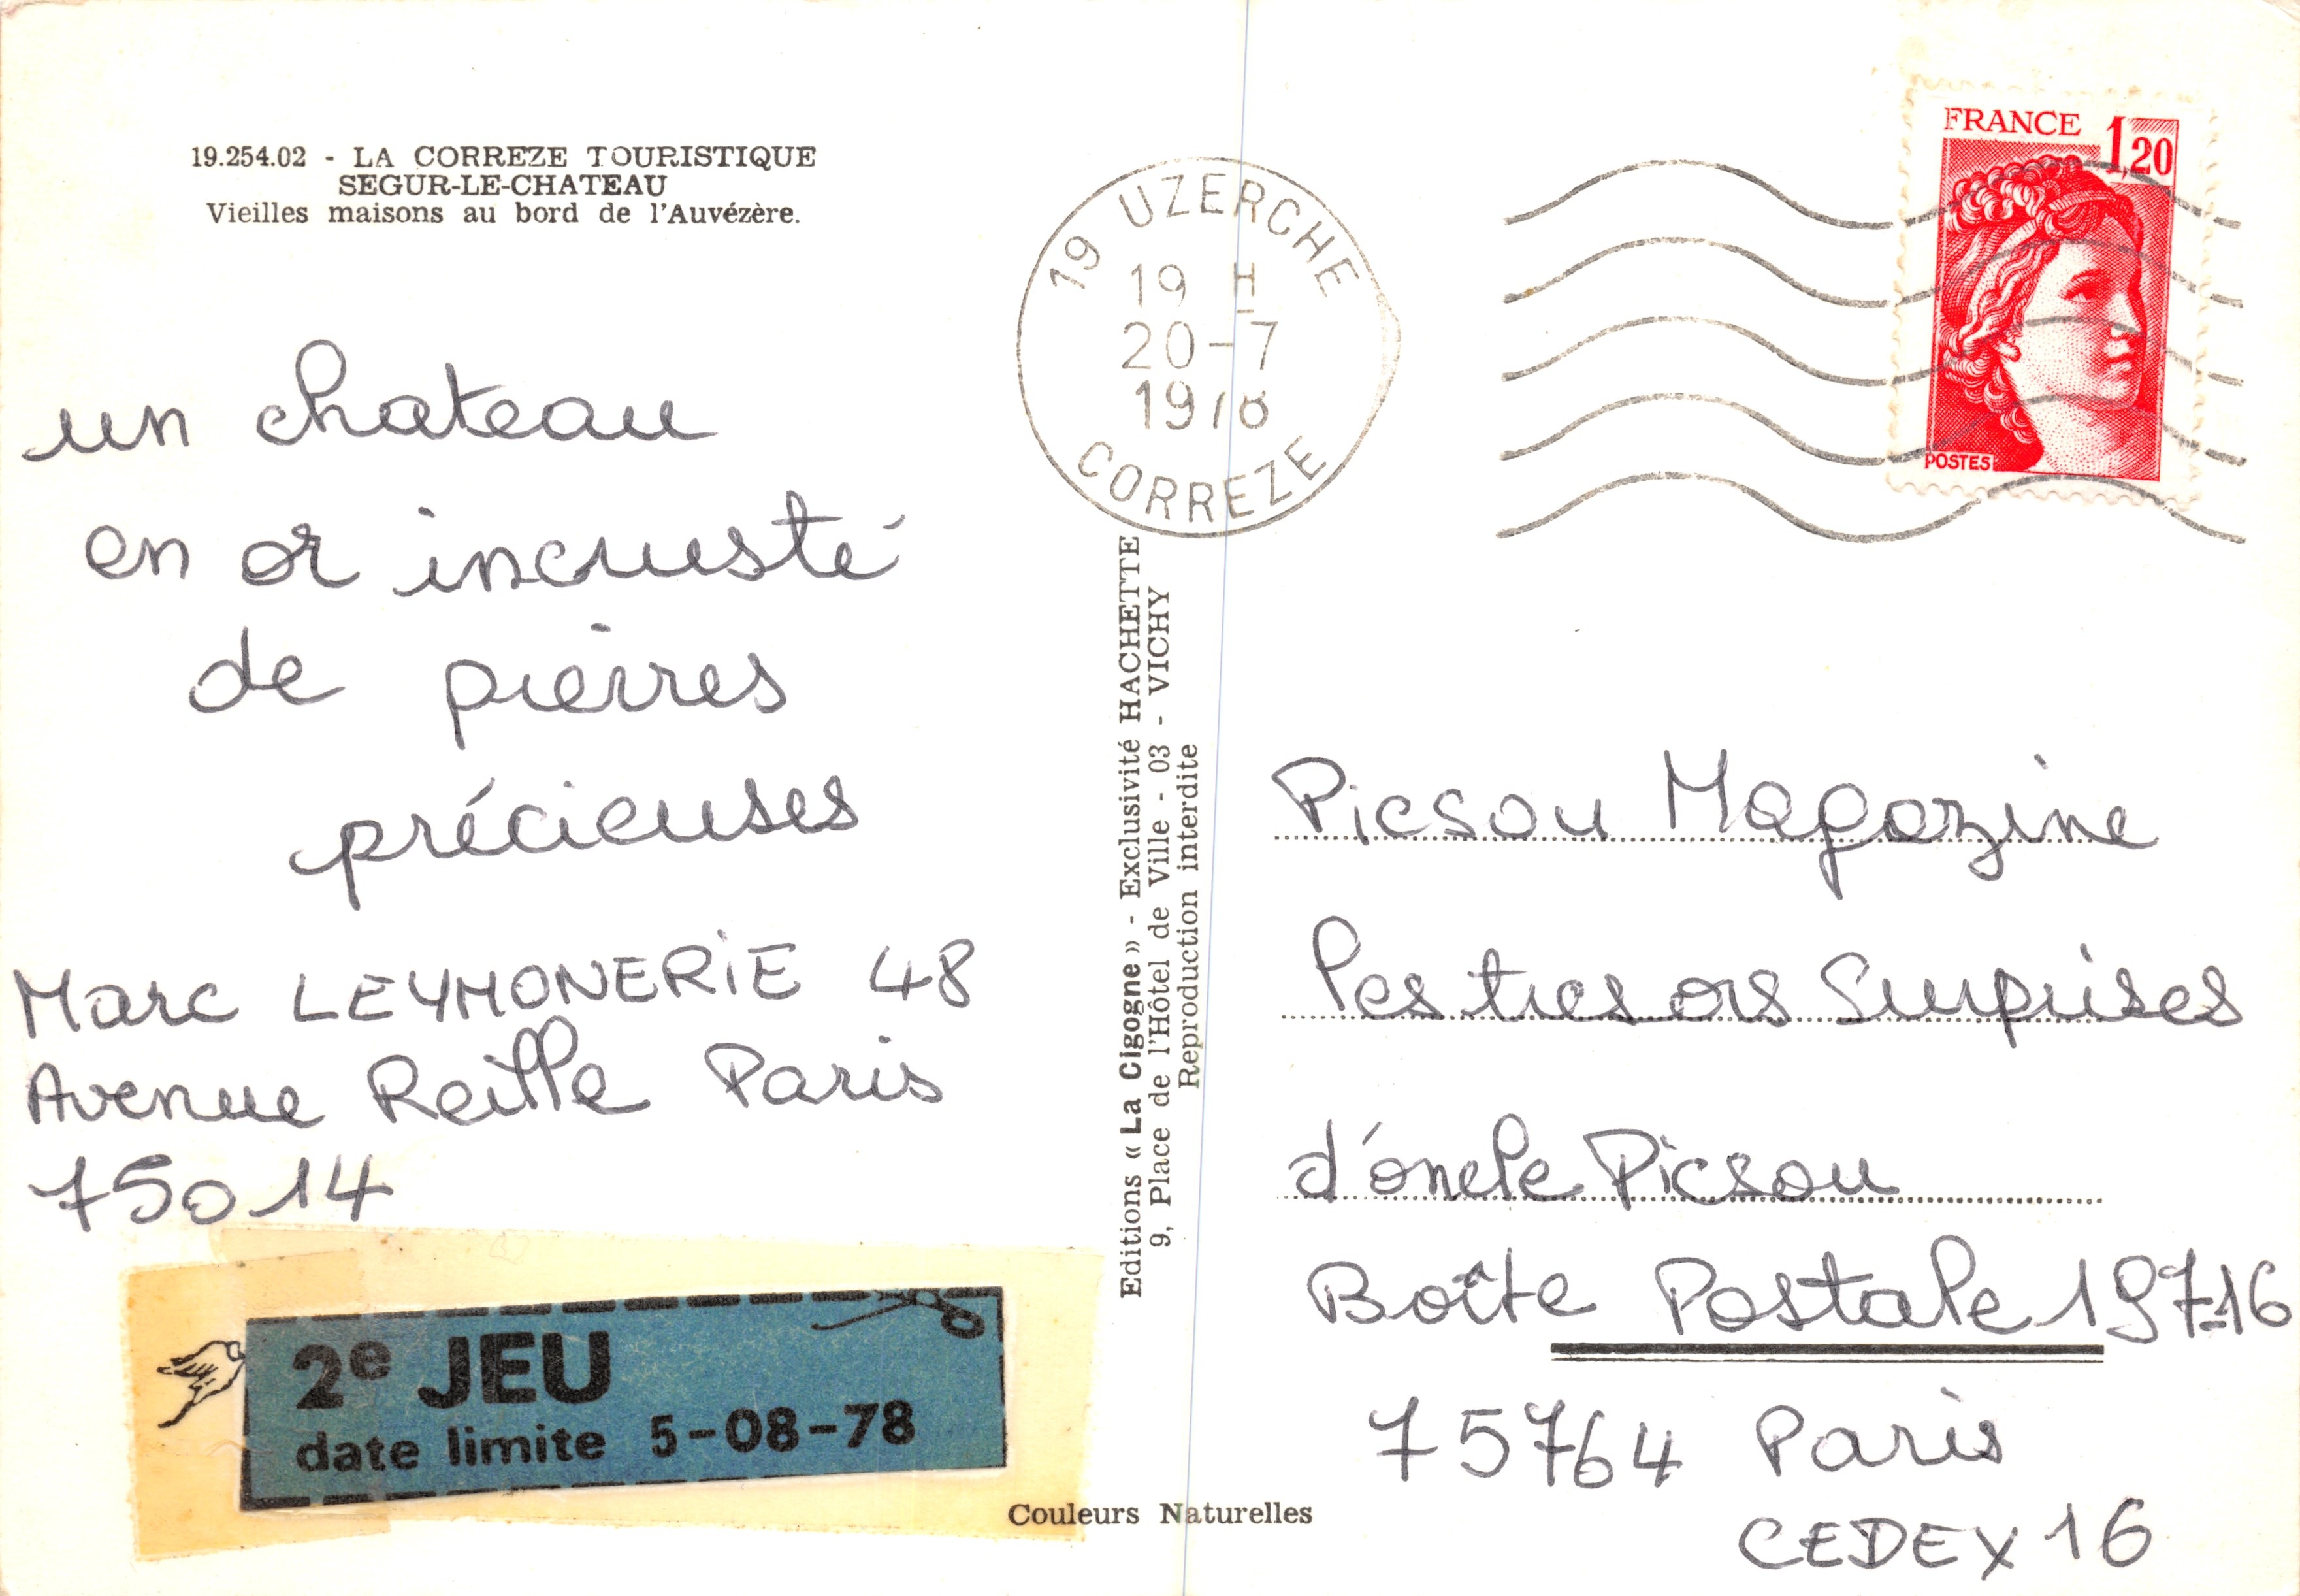 19.254.02 - LA CORREZE TOURISTIQUE
SEGUR-LE-CHATEAU
Vieilles maisons au bord de l'Auvézère.
un chateau
en or incrusté
de pierres
précieuses
Marc LEYMONERIE 48
Avenue Reille Paris
75014
2e JEU
date limite 5-08-78
Editions « La Cigogne » - Exclusivité HACHETTE
9, Place de l'Hôtel de Ville - 03 - VICHY
Reproduction interdite
Couleurs Naturelles
19 UZERCHE
19 H
20-7
1978
CORREZE
FRANCE 1,20
POSTES
Picsou Magazine
Les tresors Surprises
d'oncle Picsou
Boîte Postale 197-16
75764 Paris
CEDEX 16